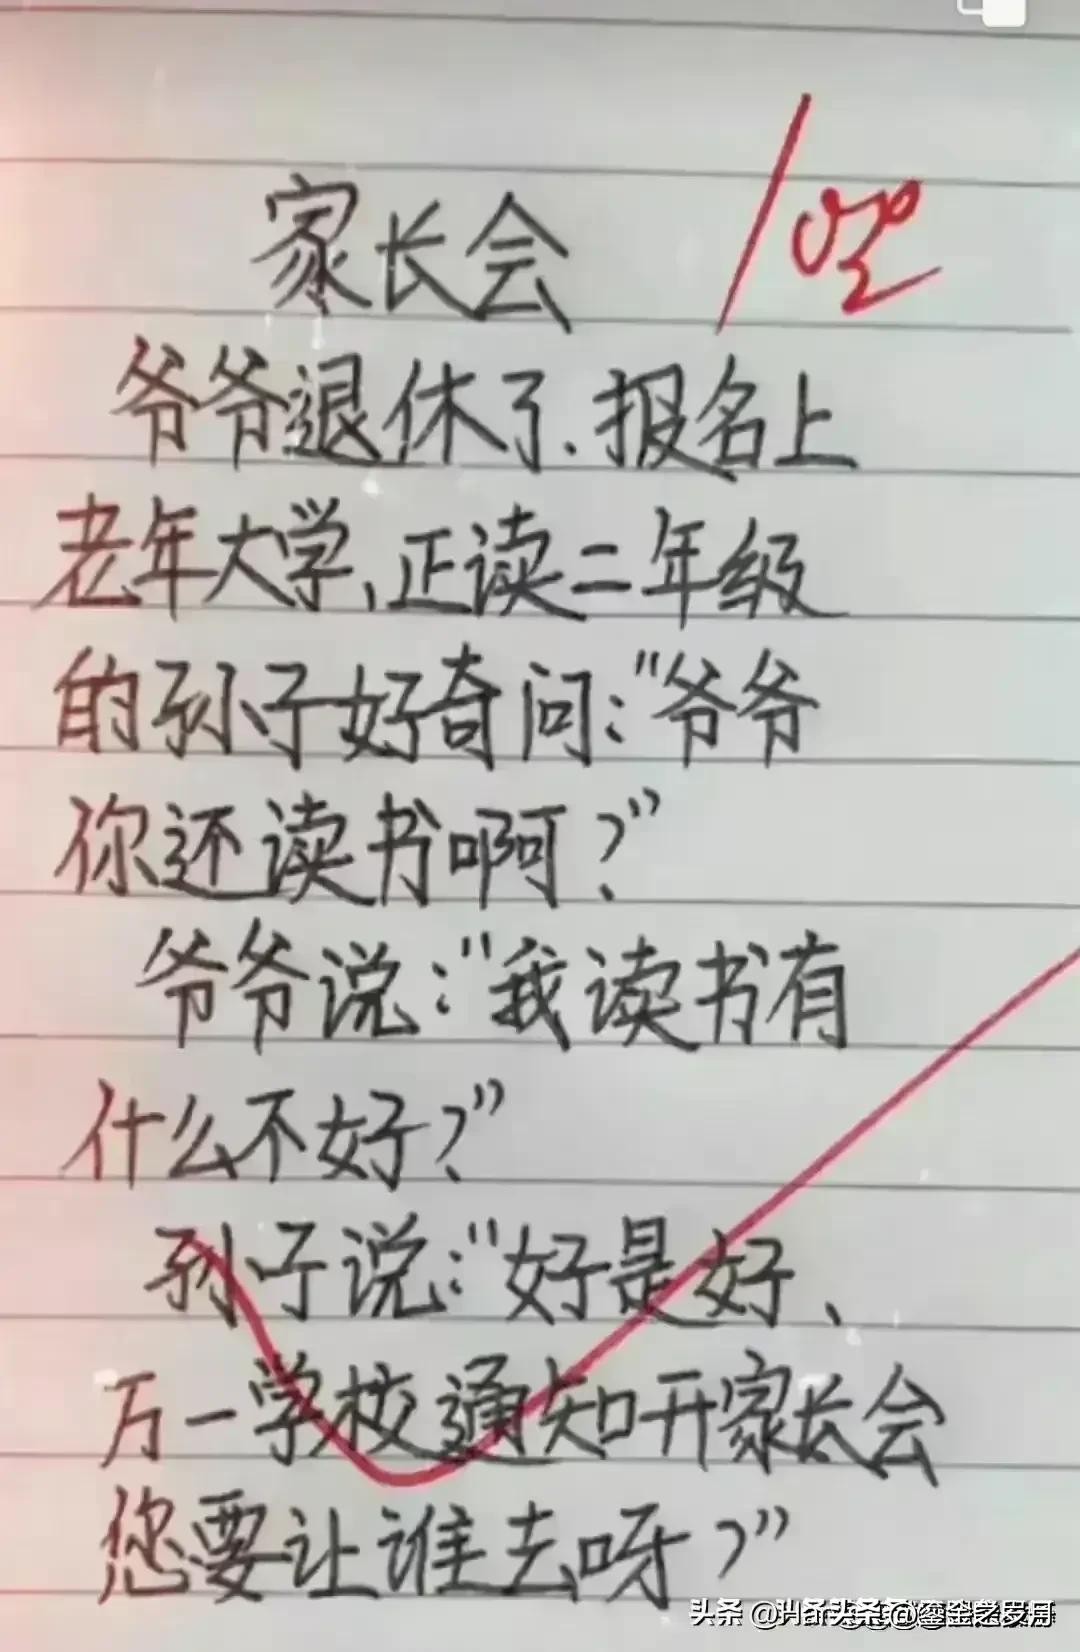 家长会
爷爷退休了、报名上
老年大学、正读二年级
的孙子好奇问:"爷爷
你还读书啊?"
爷爷说:"我读书有
什么不好?"
孙子说:"好是好、
万一学校通知开家长会
您要让谁去呀?"
头条